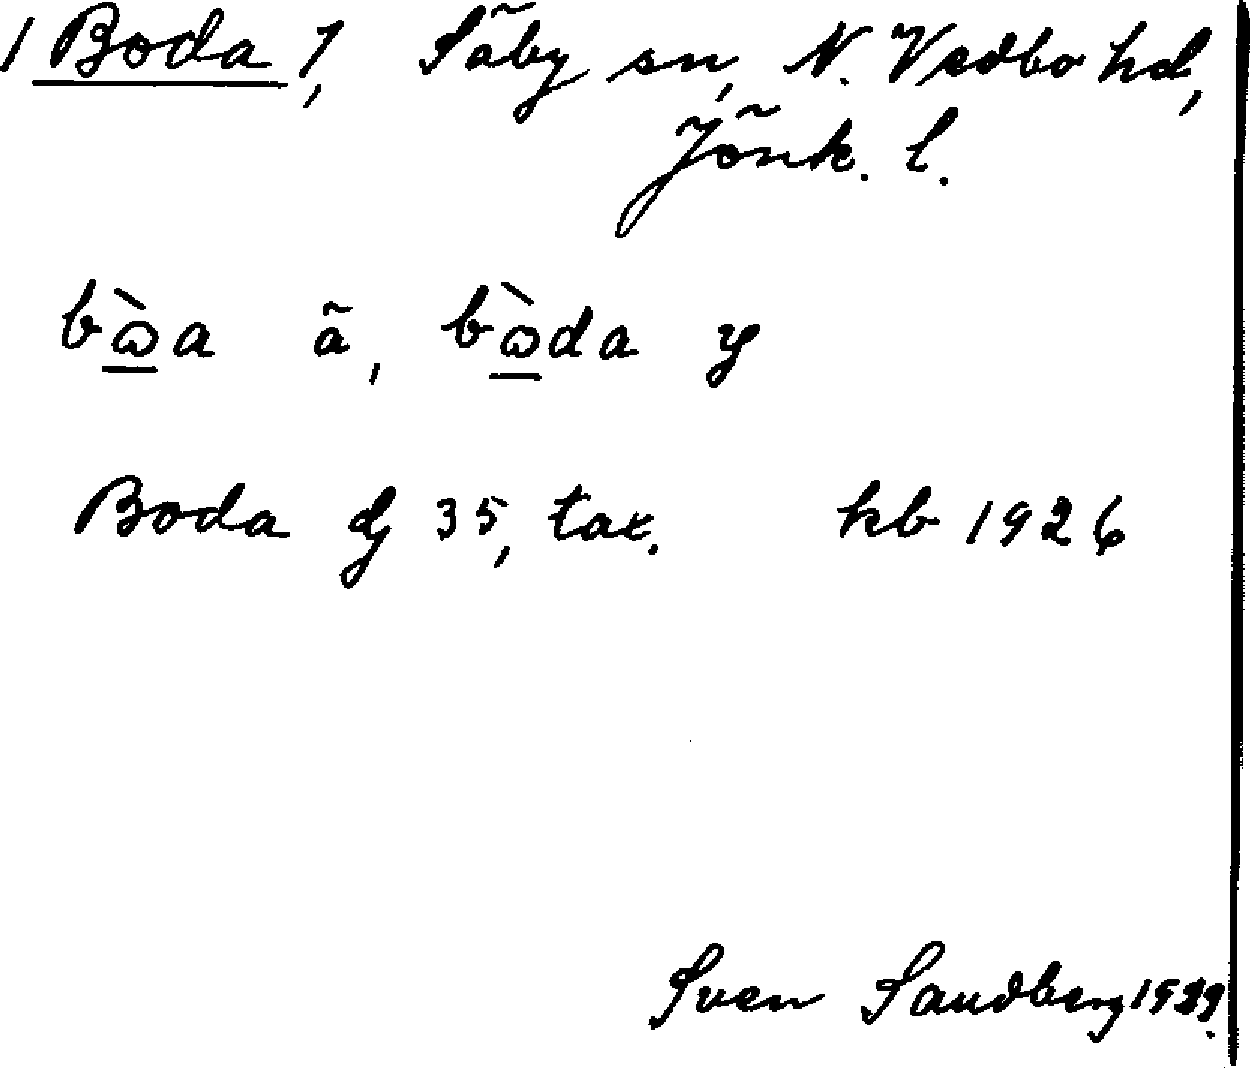 / Boda /, Säby sn, N. Vedbo hd,
Jönk. l.
bὼ̲a ä, bὼ̲da y
Boda dj 35, tax. kb 1926
Sven Sandberg